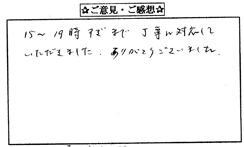 ☆ご意見・ご感想☆
15～19時すぎまで 丁寧に対応して
いただきました. ありがとうございました。